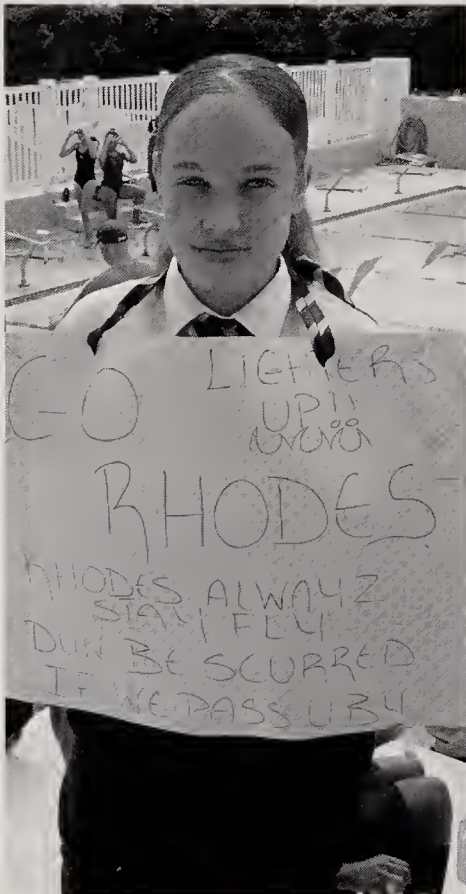 GO LIGHTERS
UP!!
RHODES
RHODES ALWAYZ
STAY FLY
DUN BE SCURRED
IF WE PASS U BY